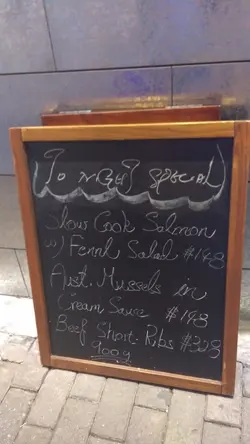 To night special
Slow Cook Salmon
w/ Fennl Salad $148
Aust. Mussels in
Cream Sauce $148
Beef Short-Ribs $328
900g